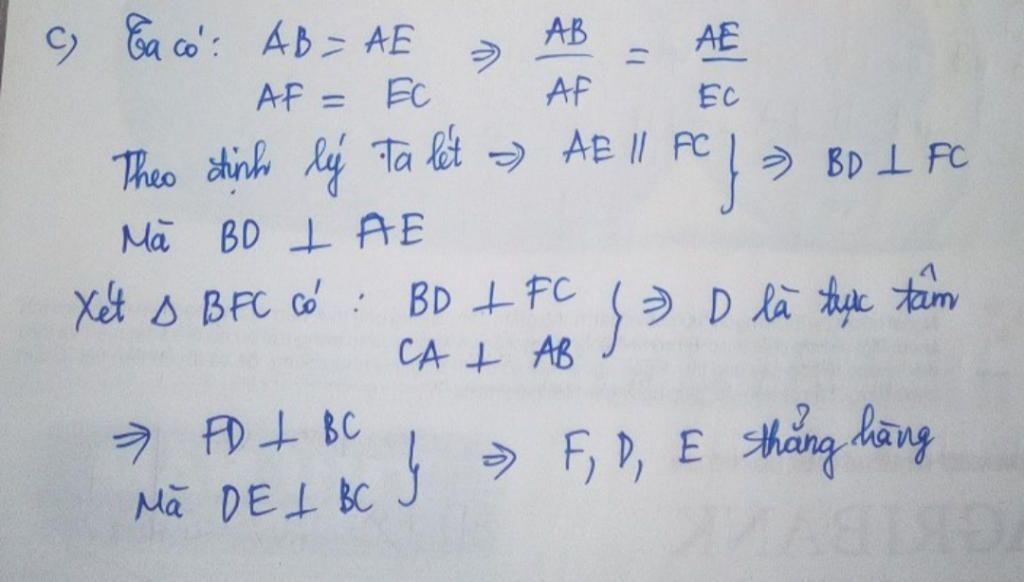 c) Ta có: AB = AE ⇒ AB/AF = AE/EC
AF = EC
Theo định lý Ta lét ⇒ AE // FC } ⇒ BD ⊥ FC
Mà BD ⊥ AE
Xét Δ BFC có: BD ⊥ FC } ⇒ D là trực tâm
CA ⊥ AB
⇒ FD ⊥ BC } ⇒ F, D, E thẳng hàng
Mà DE ⊥ BC
AGRIBANK